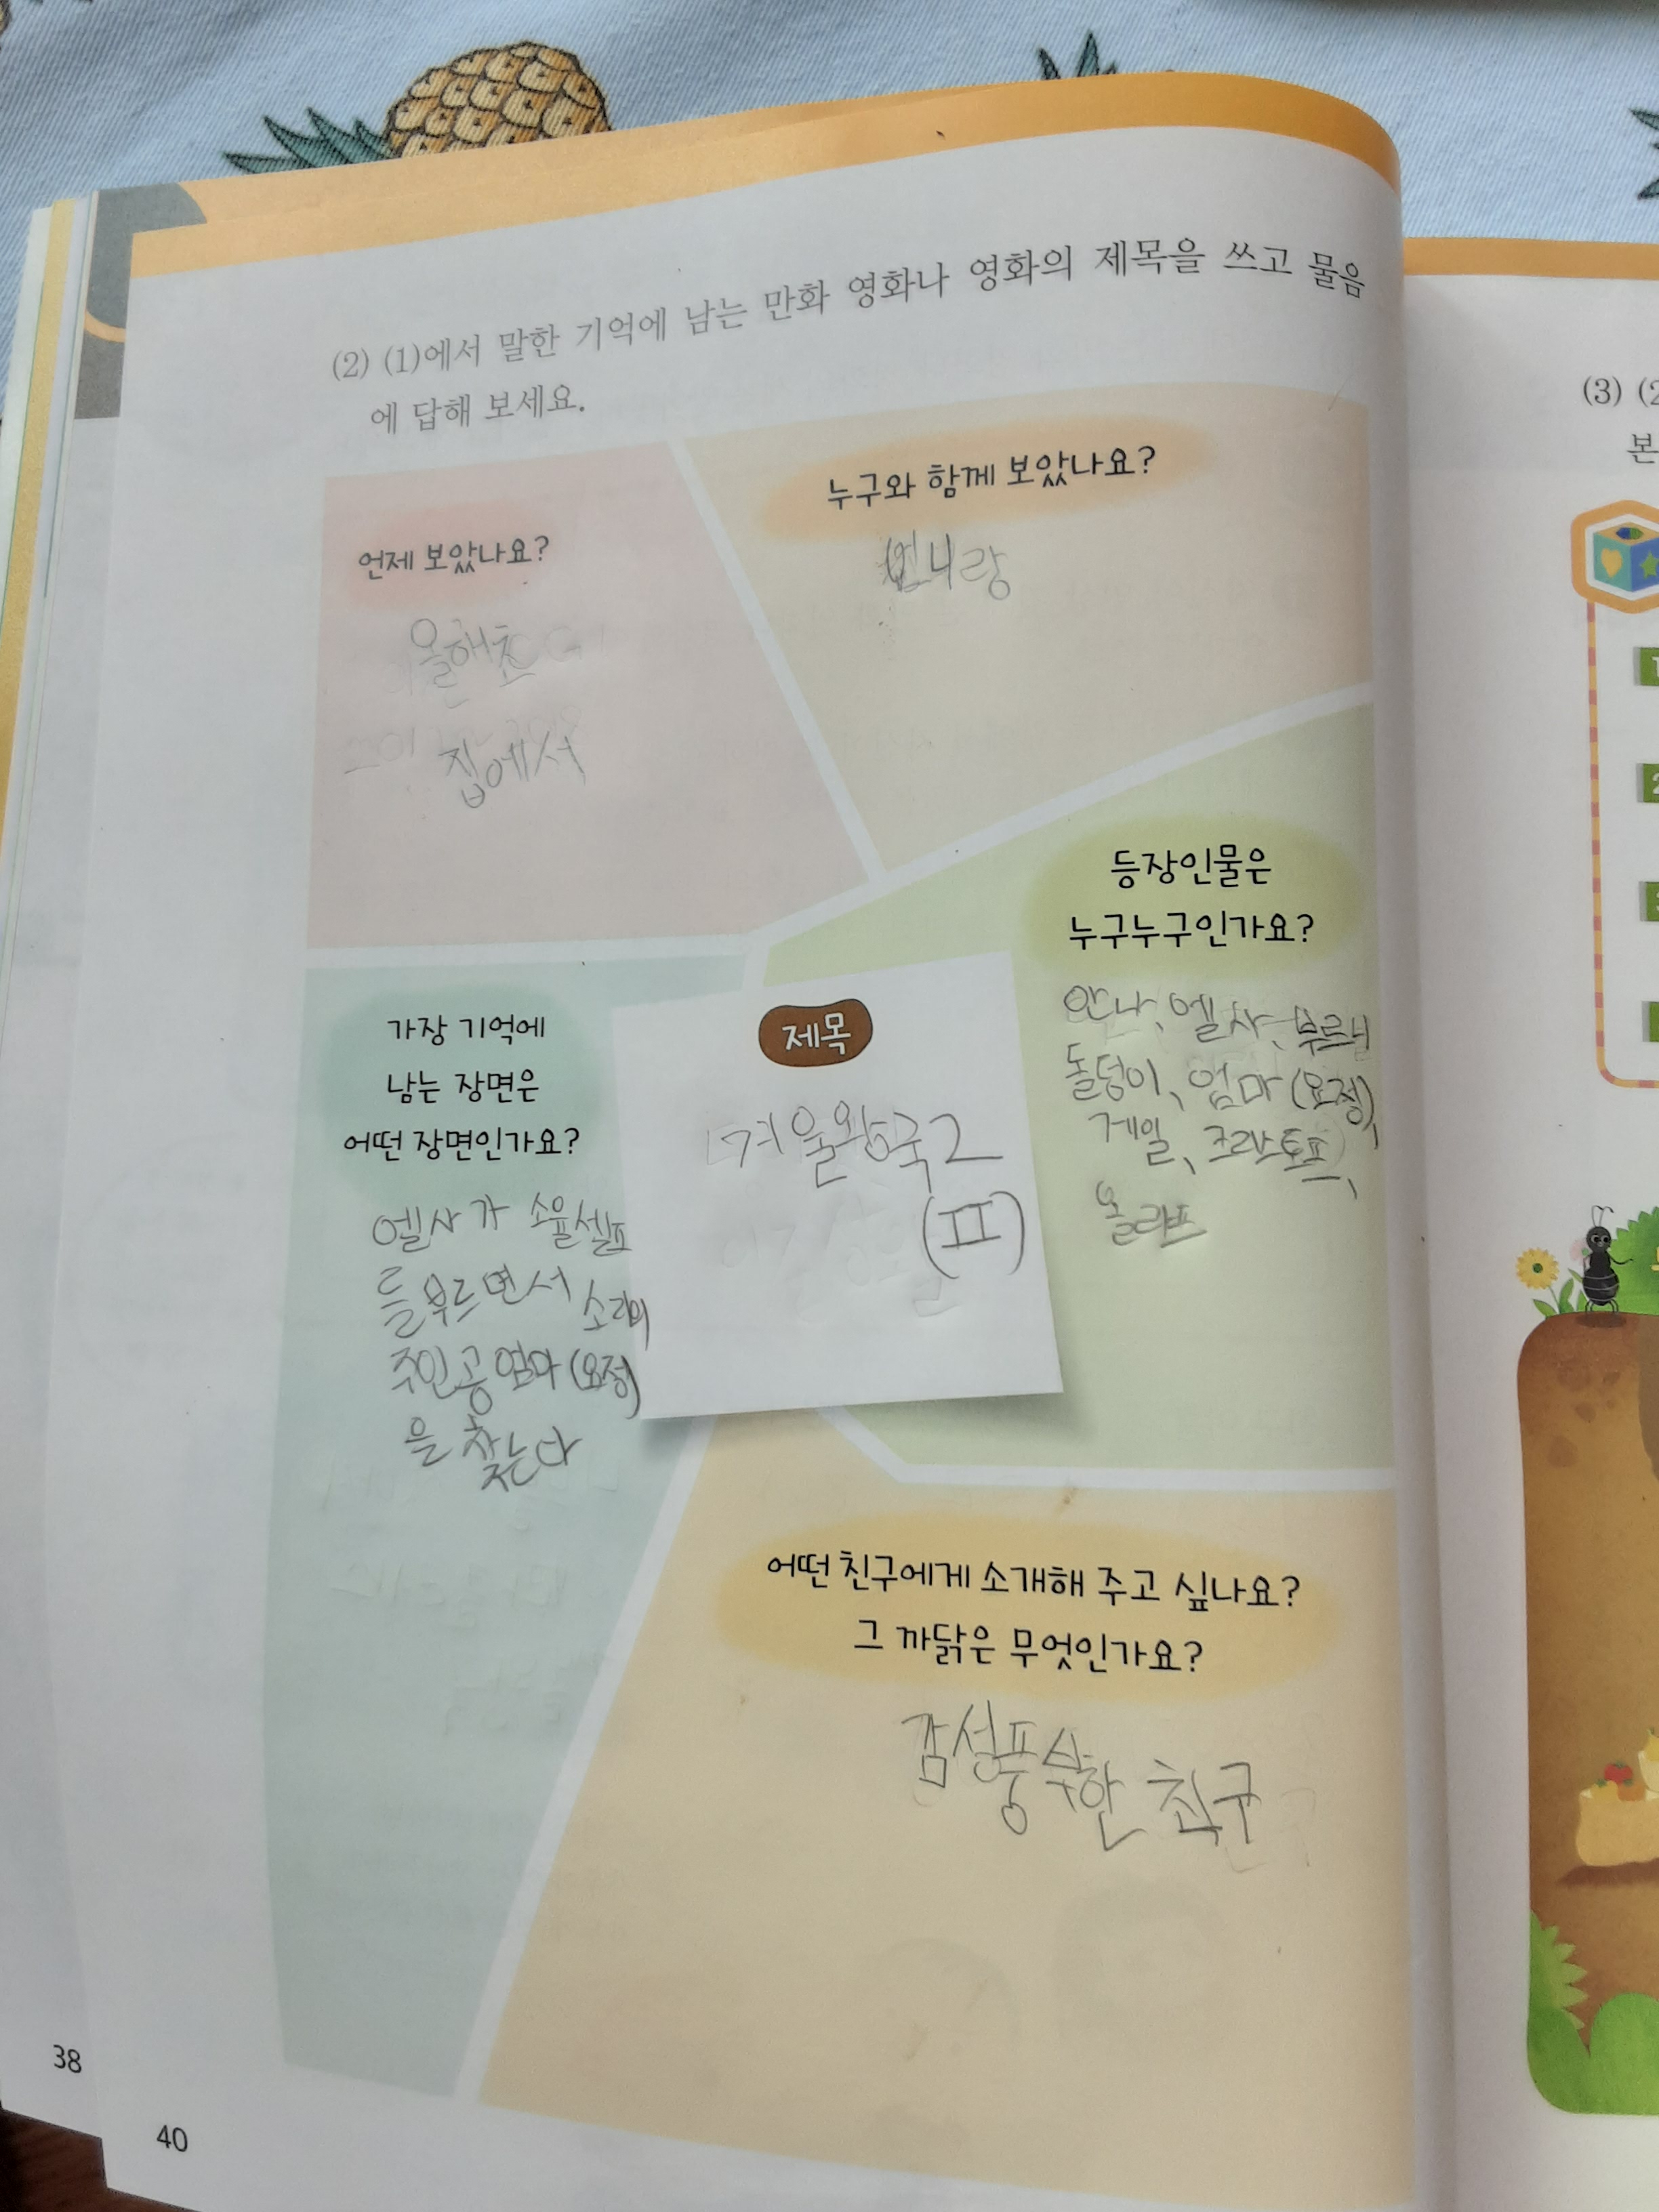 (2) (1)에서 말한 기억에 남는 만화 영화나 영화의 제목을 쓰고 물음
에 답해 보세요.
언제 보았나요?
올해초
집에서
누구와 함께 보았나요?
언니랑
등장인물은
누구누구인가요?
안나, 엘사, 부르니
돌덩이, 엄마(요정),
게일, 크리스토프,
올라프
제목
겨울왕국2
(II)
가장 기억에
남는 장면은
어떤 장면인가요?
엘사가 쇼율셀프
를부르면서 소리의
주인공 엄마(요정)
을 찾는다
어떤 친구에게 소개해 주고 싶나요?
그 까닭은 무엇인가요?
감성풍부한 친구
38
40
(3) (2
본